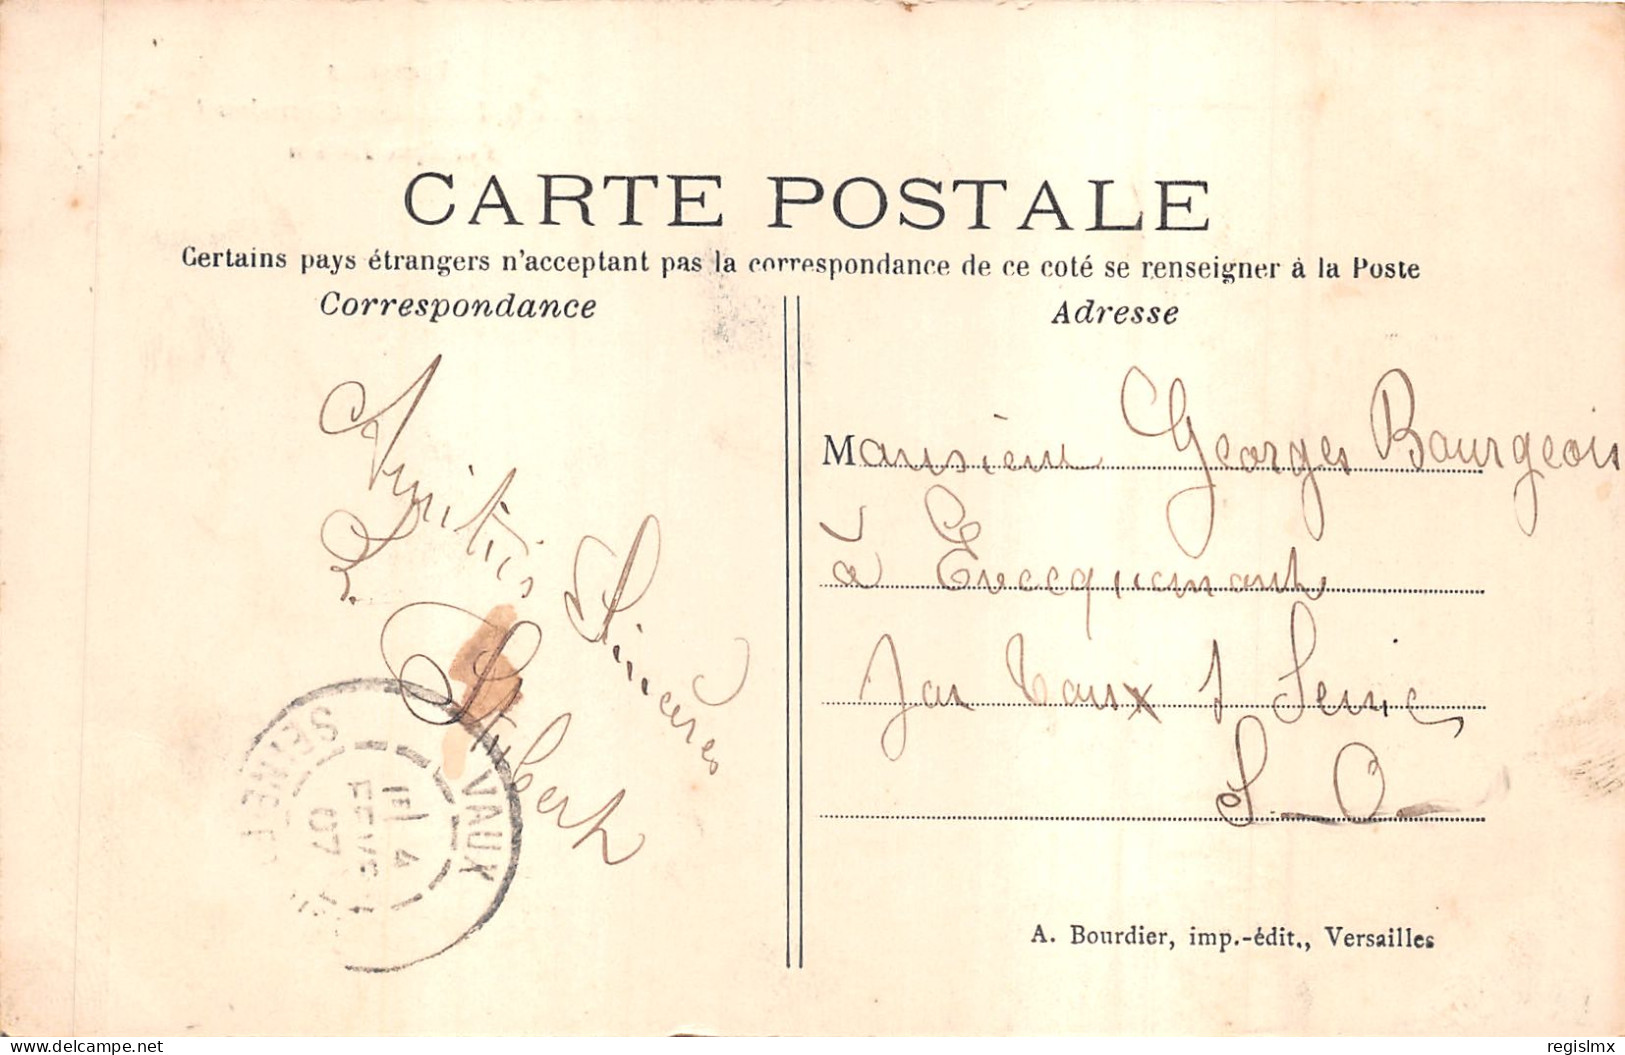 CARTE POSTALE
Certains pays étrangers n'acceptant pas la correspondance de ce coté se renseigner à la Poste
Correspondance
Amitiés
Sincères
Hubert
VAUX
SEINE-ET-
4
FEVR
07
Adresse
Monsieur Georges Bourgeois
à Evecquemont
par Vaux s Seine
S-O
A. Bourdier, imp.-édit., Versailles
delcampe.net
regislmx